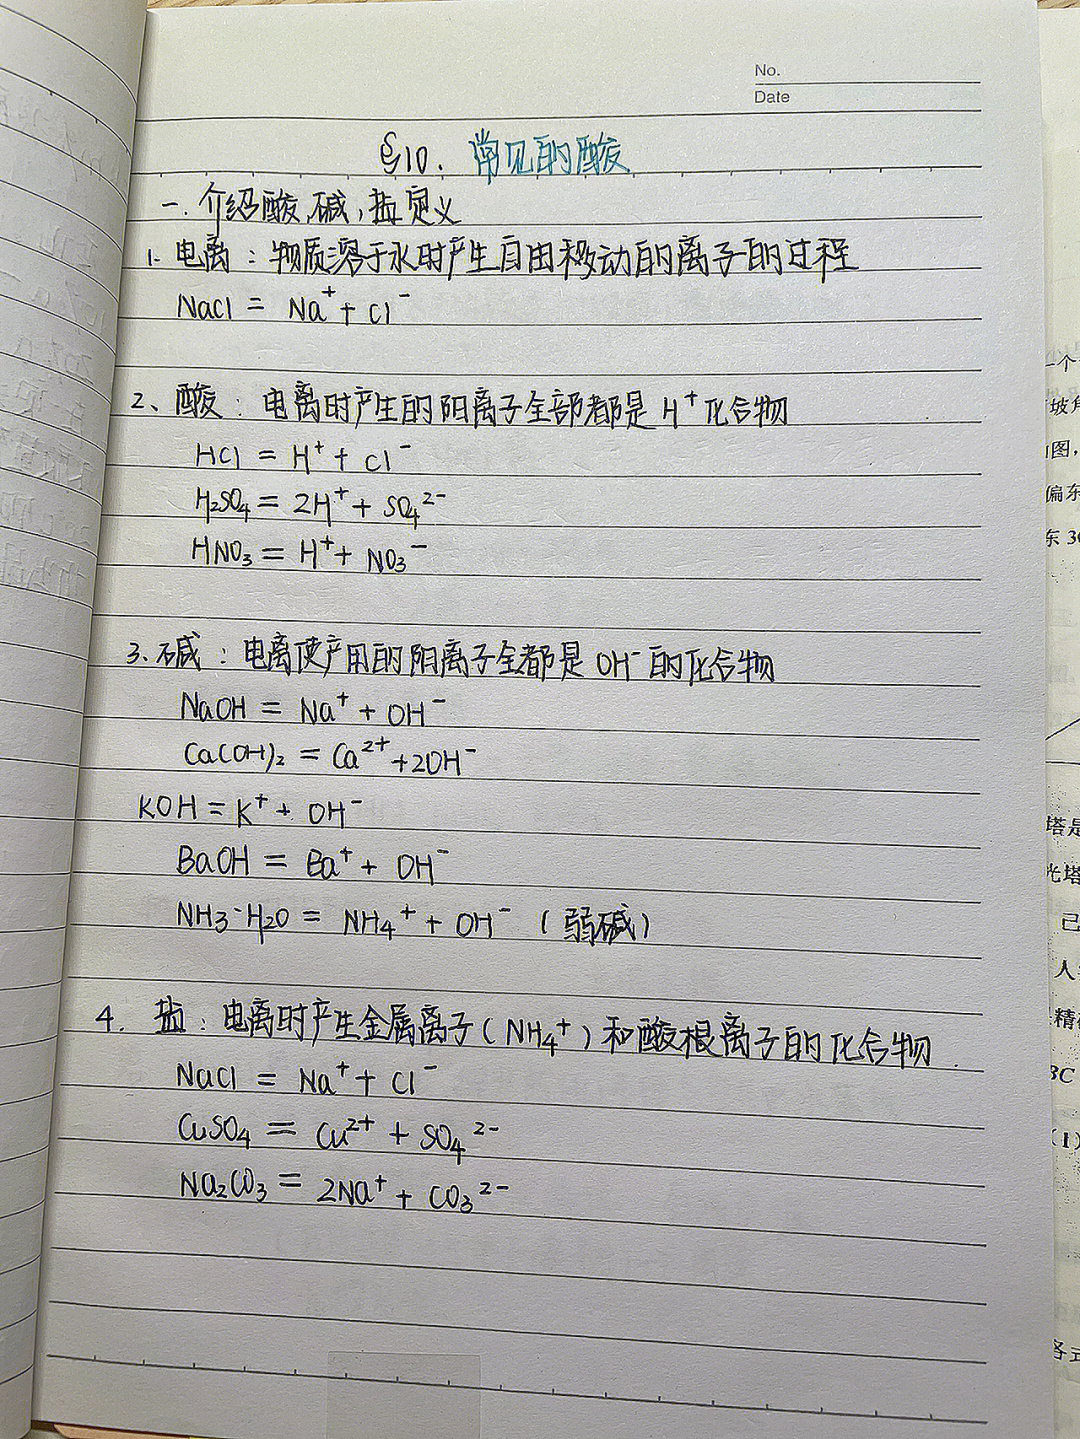 No.
Date
§10. 常见的酸
一. 介绍酸,碱,盐定义
1. 电离：物质溶于水时产生自由移动的离子的过程
NaCl = Na⁺ + Cl⁻
2、酸：电离时产生的阳离子全部都是H⁺化合物
HCl = H⁺ + Cl⁻
H₂SO₄ = 2H⁺ + SO₄²⁻
HNO₃ = H⁺ + NO₃⁻
3、碱：电离使产用的阳离子全都是OH⁻的化合物
NaOH = Na⁺ + OH⁻
Ca(OH)₂ = Ca²⁺ + 2OH⁻
KOH = K⁺ + OH⁻
BaOH = Ba⁺ + OH⁻
NH₃·H₂O = NH₄⁺ + OH⁻ (弱碱)
4. 盐：电离时产生金属离子(NH₄⁺)和酸根离子的化合物.
NaCl = Na⁺ + Cl⁻
CuSO₄ = Cu²⁺ + SO₄²⁻
Na₂CO₃ = 2Na⁺ + CO₃²⁻
一个
坡角
图，
偏东
东 3
塔是
光塔
已
人
精
BC
(1)
各式